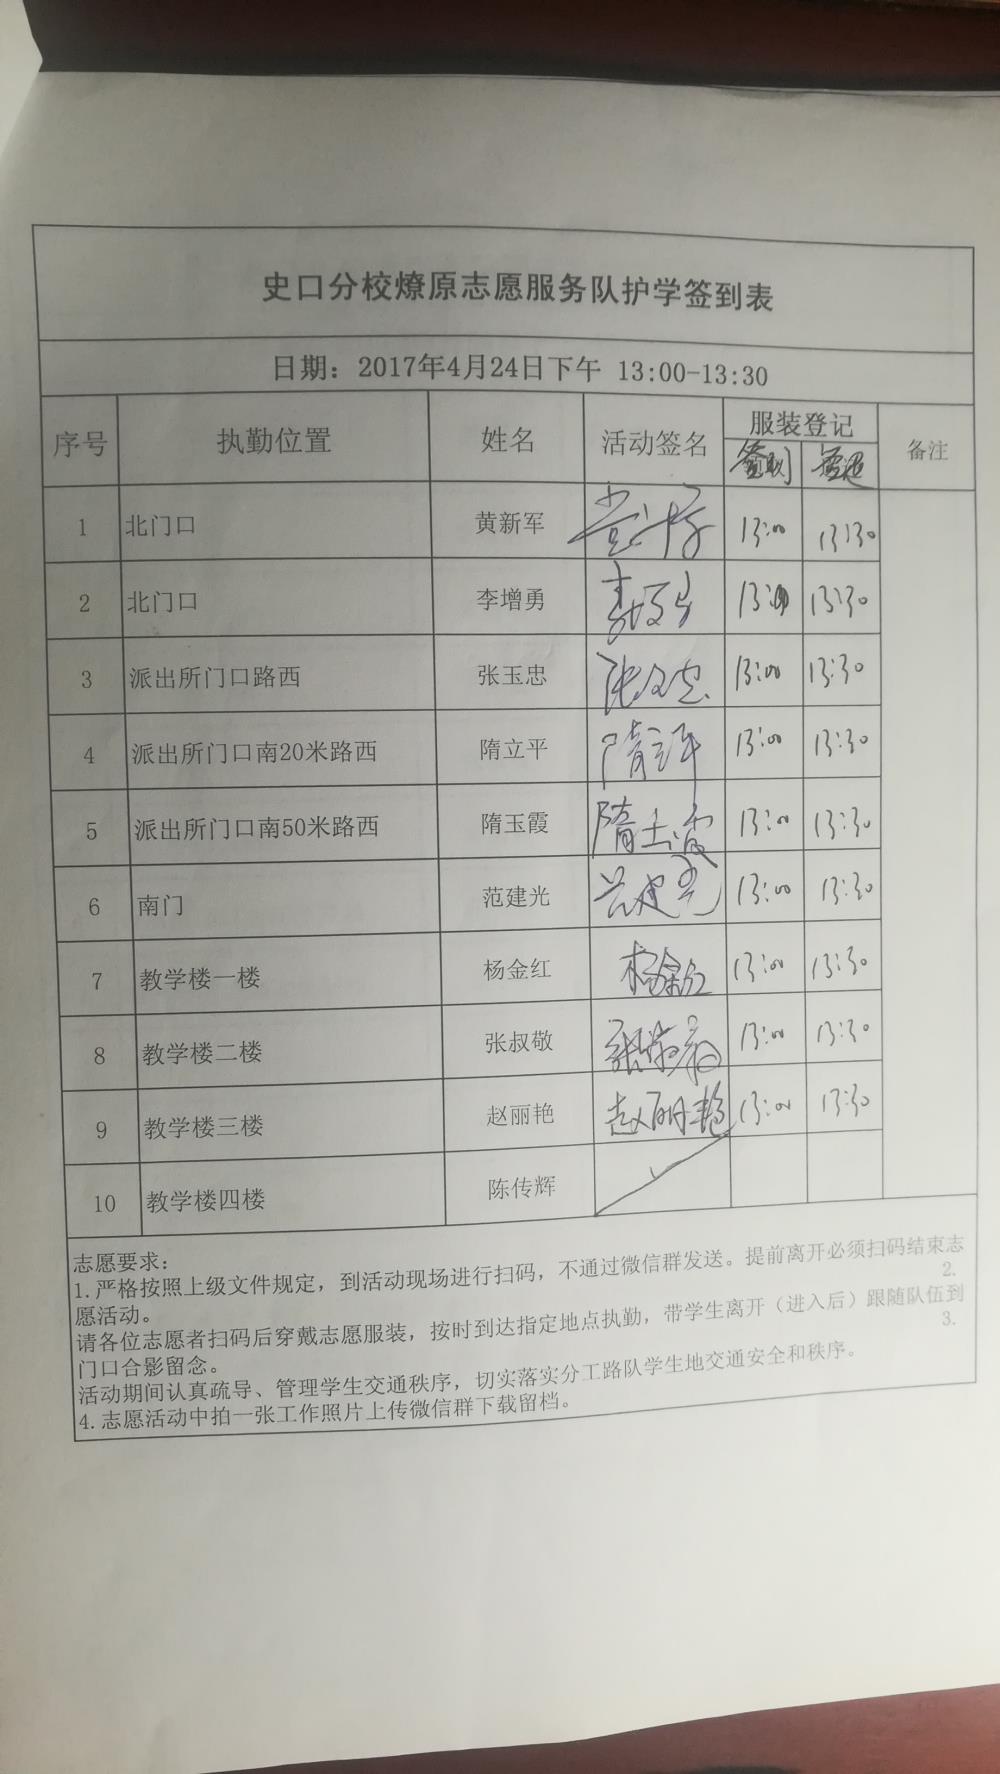 史口分校燎原志愿服务队护学签到表
日期：2017年4月24日下午 13:00-13:30
序号 执勤位置 姓名 活动签名 服装登记 备注
签到 签退
1 北门口 黄新军 13:00 13:30
2 北门口 李增勇 李增勇 13:00 13:30
3 派出所门口路西 张玉忠 张玉忠 13:00 13:30
4 派出所门口南20米路西 隋立平 隋立平 13:00 13:30
5 派出所门口南50米路西 隋玉霞 隋玉霞 13:00 13:30
6 南门 范建光 范建光 13:00 13:30
7 教学楼一楼 杨金红 杨金红 13:00 13:30
8 教学楼二楼 张叔敬 张叔敬 13:00 13:30
9 教学楼三楼 赵丽艳 赵丽艳 13:00 13:30
10 教学楼四楼 陈传辉
志愿要求：
1.严格按照上级文件规定，到活动现场进行扫码，不通过微信群发送。提前离开必须扫码结束志
愿活动。 2.
请各位志愿者扫码后穿戴志愿服装，按时到达指定地点执勤，带学生离开（进入后）跟随队伍到
门口合影留念。 3.
活动期间认真疏导、管理学生交通秩序，切实落实分工路队学生地交通安全和秩序。
4.志愿活动中拍一张工作照片上传微信群下载留档。